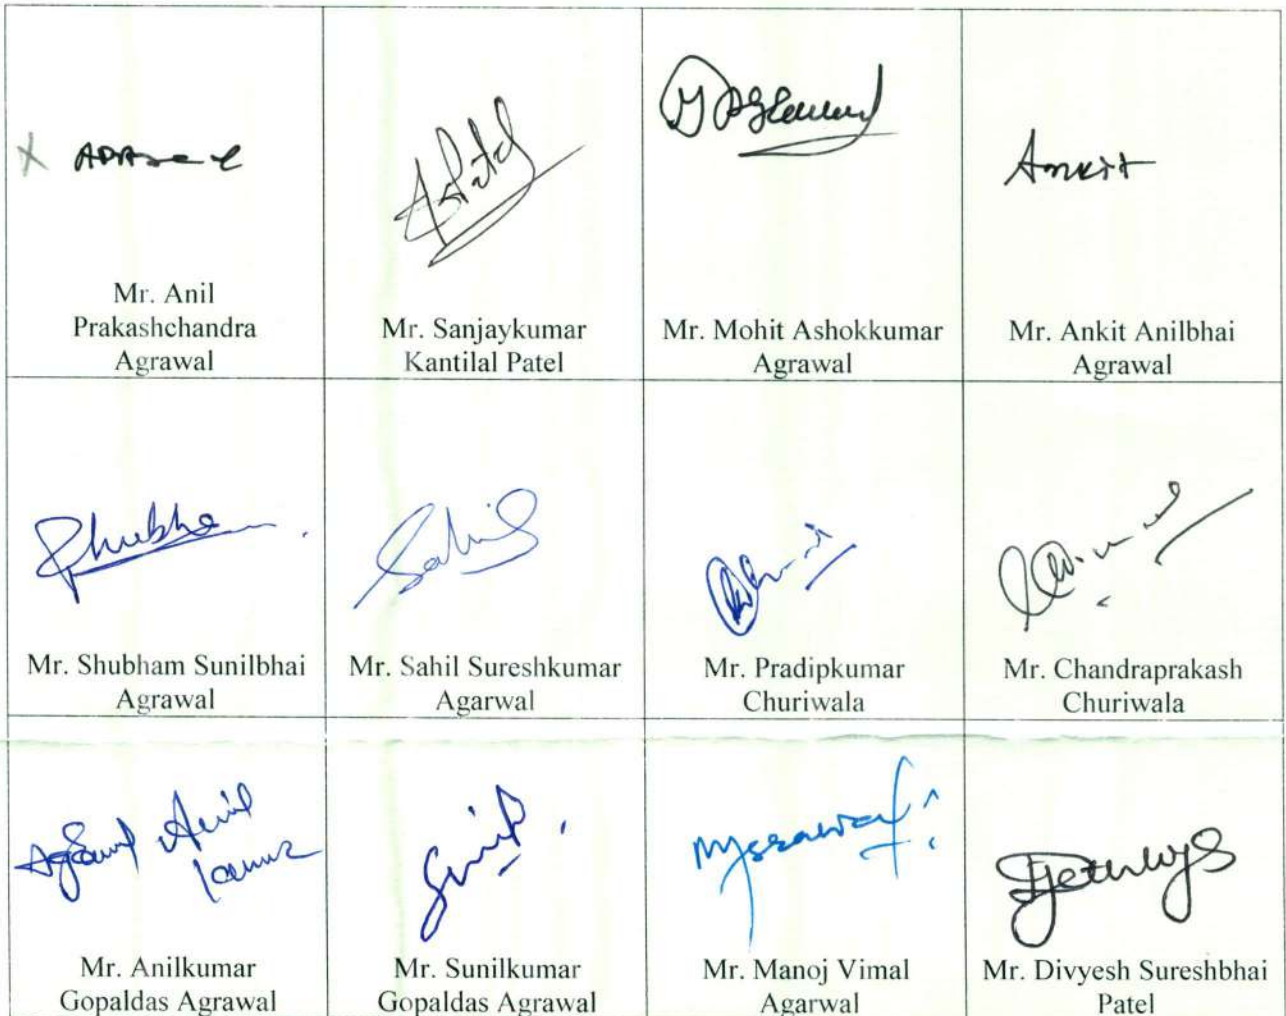 Mr. Anil
Prakashchandra
Agrawal
SPatel
Mr. Sanjaykumar
Kantilal Patel
Mr. Mohit Ashokkumar
Agrawal
Ankit
Mr. Ankit Anilbhai
Agrawal
Shubha
Mr. Shubham Sunilbhai
Agrawal
Sahil
Mr. Sahil Sureshkumar
Agarwal
Mr. Pradipkumar
Churiwala
Mr. Chandraprakash
Churiwala
Mr. Anilkumar
Gopaldas Agrawal
Sunil
Mr. Sunilkumar
Gopaldas Agrawal
Mr. Manoj Vimal
Agarwal
Mr. Divyesh Sureshbhai
Patel